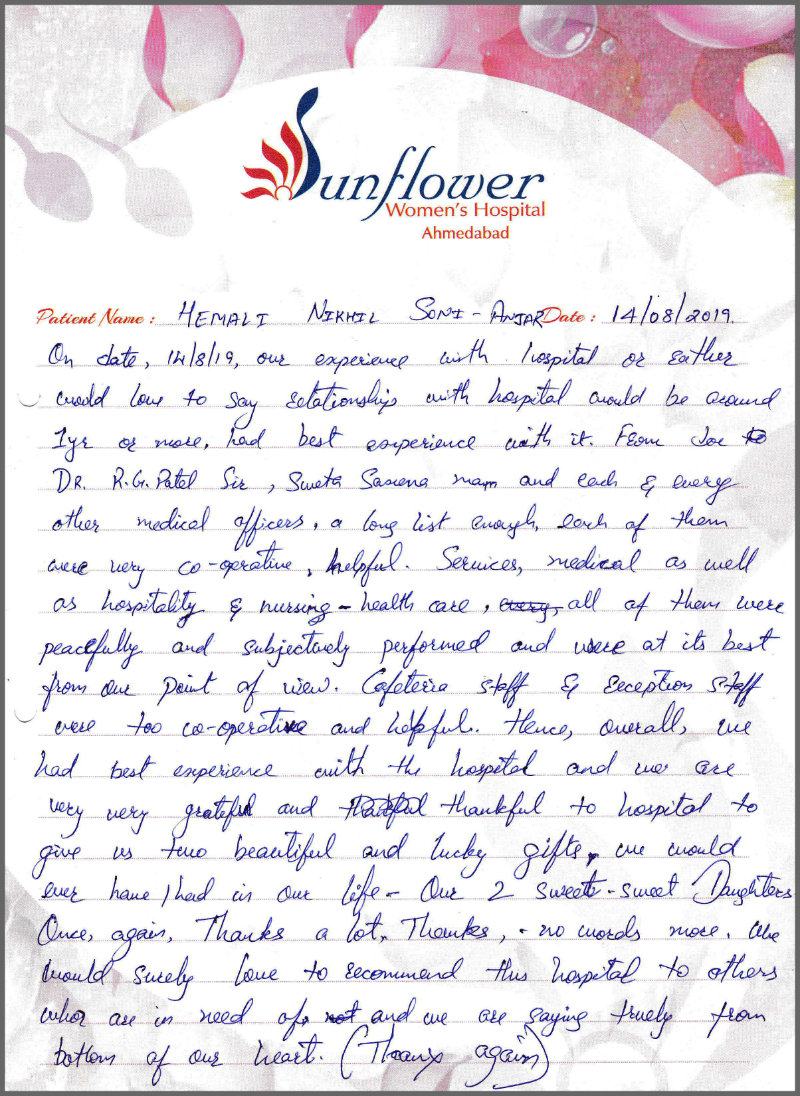 Sunflower
Women's Hospital
Ahmedabad
Patient Name : HEMALI NIKHIL SONI - ANJAR Date : 14/08/2019.
On date, 14/8/19, our experience with hospital or rather
would love to say relationships with hospital would be around
1yr or more, had best experience with it. From
DR. R.G. Patel Sir, Sweta Saxena mam and each & every
other medical officers, a long list enough, each of them
were very co-operative, helpful. Services, medical as well
as hospitality & nursing - health care, all of them were
peacefully and subjectively performed and were at its best
from our point of view. Cafeteria staff & reception staff
were too co-operative and helpful. Hence, overall, we
had best experience with the hospital and we are
very very grateful and thankful to hospital to
give us two beautiful and lucky gifts, we would
ever have / had in our life - Our 2 sweet - sweet Daughters
Once, again, Thanks a lot, Thanks, - no words more. We
would surely love to recommend this hospital to others
who are in need of, and we are saying truely from
bottom of our heart. (Thanx again)